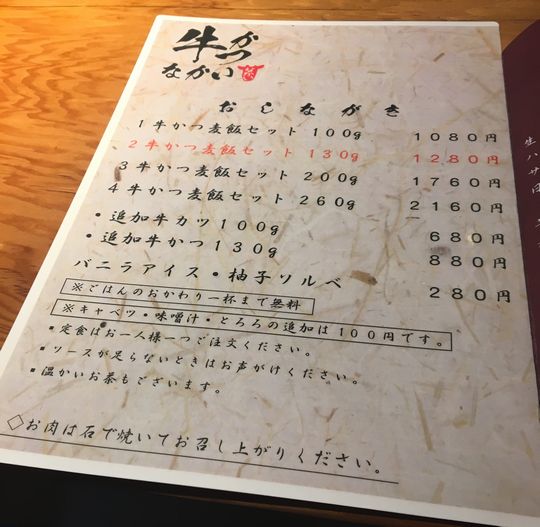 牛かつ
ながい
おしながき
1牛かつ麦飯セット 100g 1080円
2牛かつ麦飯セット 130g 1280円
3牛かつ麦飯セット 200g 1760円
4牛かつ麦飯セット 260g 2160円
・追加牛カツ100g 680円
・追加牛かつ130g 880円
バニラアイス・柚子ソルベ 280円
※ごはんのおかわり一杯まで無料
※キャベツ・味噌汁・とろろの追加は100円です。
▪定食はお一人様一つご注文ください。
▪ソースが足らないときはお声がけください。
▪温かいお茶もございます。
◇お肉は石で焼いてお召し上がりください。